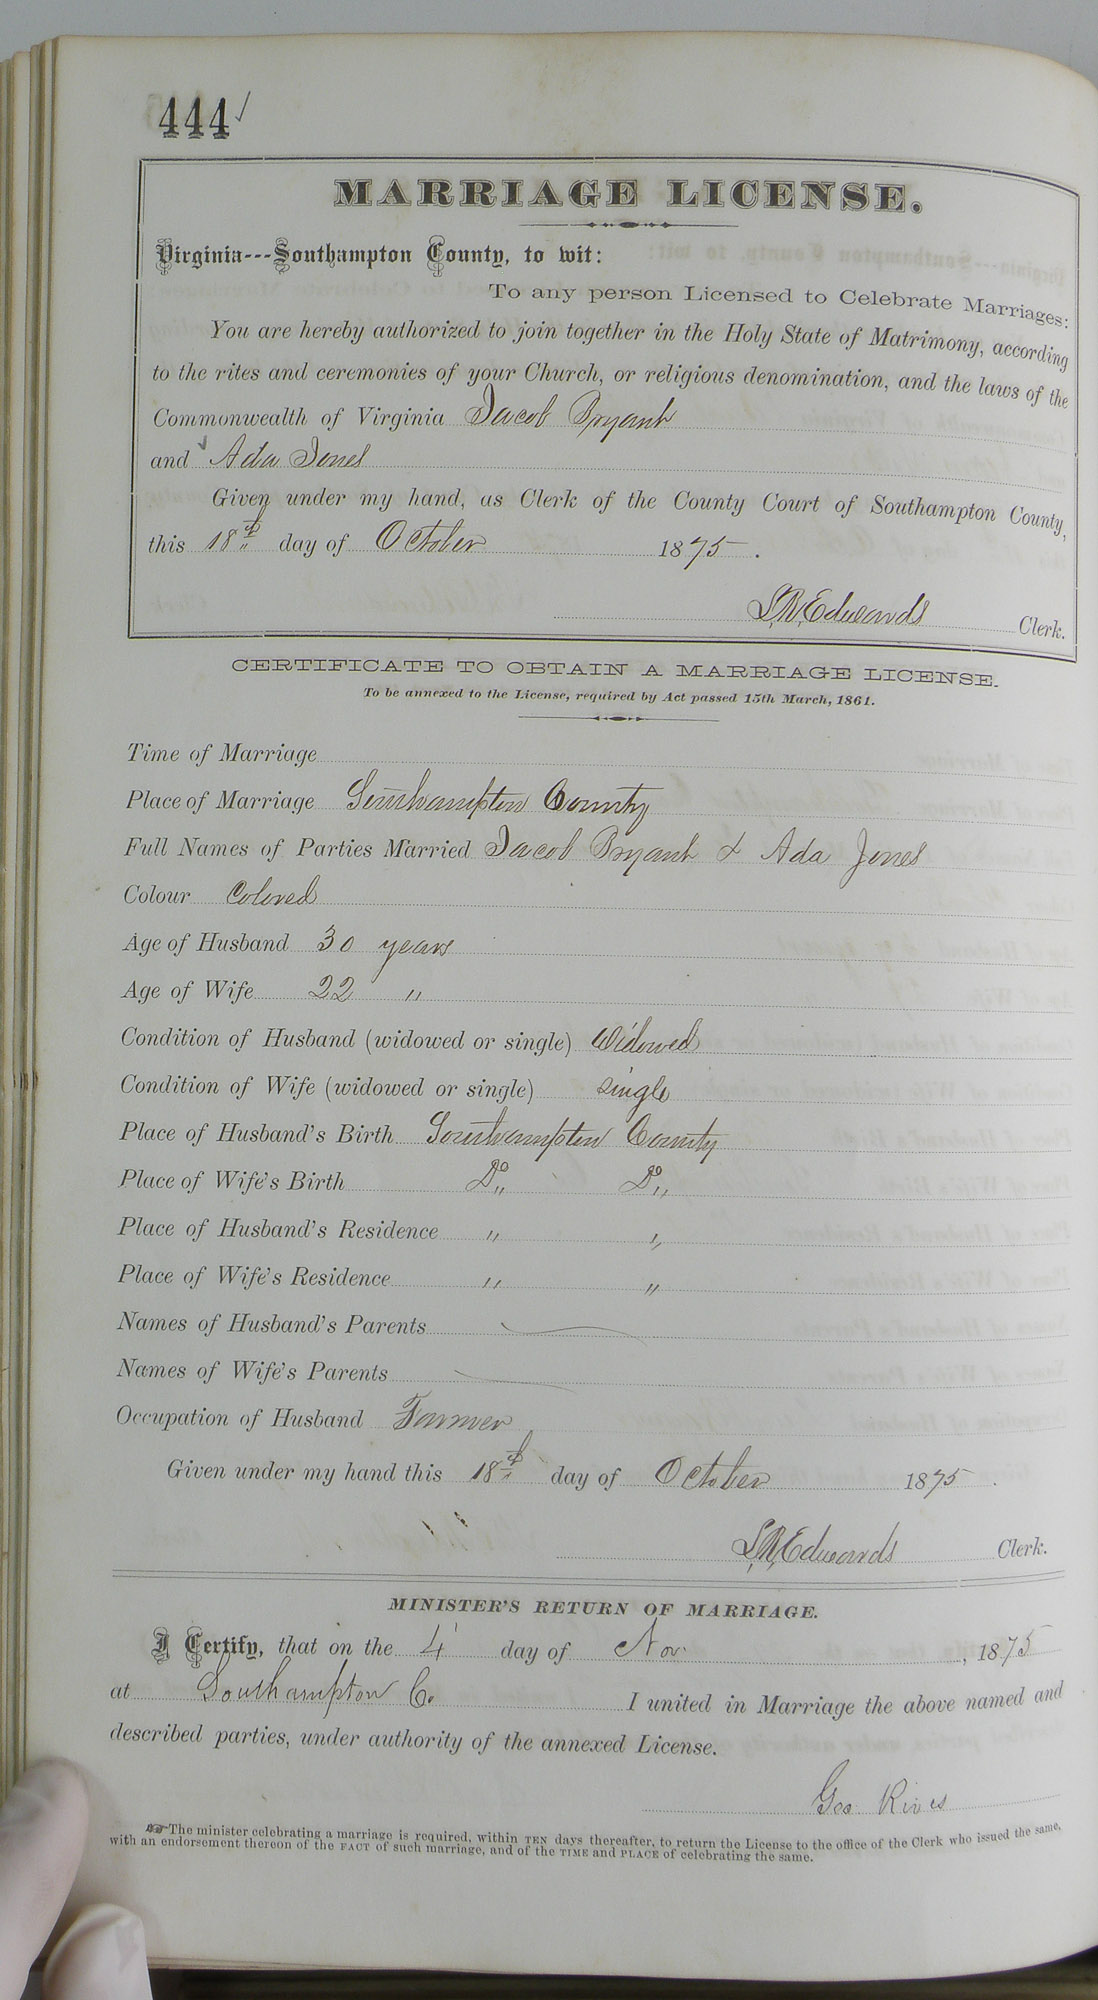 444 ✓
MARRIAGE LICENSE.
Virginia---Southampton County, to wit:
To any person Licensed to Celebrate Marriages:
You are hereby authorized to join together in the Holy State of Matrimony, according
to the rites and ceremonies of your Church, or religious denomination, and the laws of the
Commonwealth of Virginia Jacob Bryant
and ✓ Ada Jones
Given under my hand, as Clerk of the County Court of Southampton County,
this 18th day of October 1875.
L.R. Edwards Clerk.
CERTIFICATE TO OBTAIN A MARRIAGE LICENSE.
To be annexed to the License, required by Act passed 15th March, 1861.
Time of Marriage
Place of Marriage Southampton County
Full Names of Parties Married Jacob Bryant & Ada Jones
Colour Colored
Age of Husband 30 years
Age of Wife 22 "
Condition of Husband (widowed or single) Widowed
Condition of Wife (widowed or single) single
Place of Husband's Birth Southampton County
Place of Wife's Birth Do " Do "
Place of Husband's Residence " "
Place of Wife's Residence " "
Names of Husband's Parents
Names of Wife's Parents
Occupation of Husband Farmer
Given under my hand this 18th day of October 1875.
L.R. Edwards Clerk.
MINISTER'S RETURN OF MARRIAGE.
I Certify, that on the 4 day of Nov, 1875
at Southampton Co. I united in Marriage the above named and
described parties, under authority of the annexed License.
Geo Rives
☞The minister celebrating a marriage is required, within TEN days thereafter, to return the License to the office of the Clerk who issued the same,
with an endorsement thereon of the FACT of such marriage, and of the TIME and PLACE of celebrating the same.